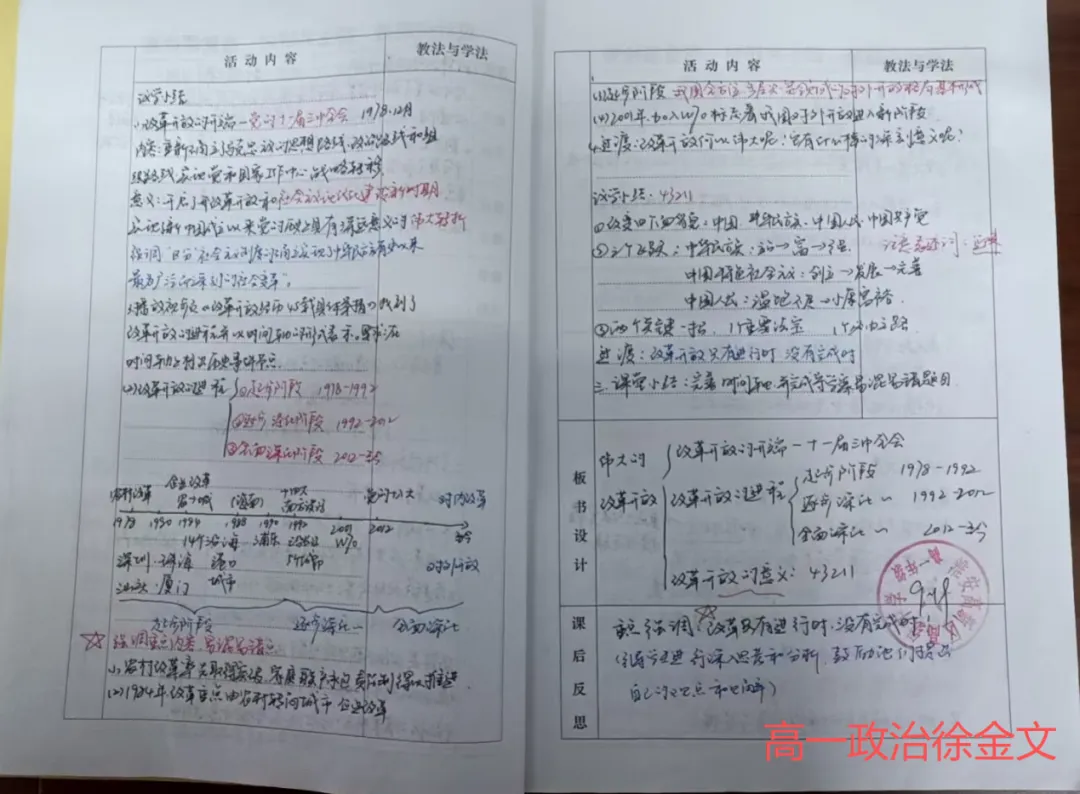 活动内容
教法与学法
议学小结
(1)改革开放的开端—党的十一届三中全会 1978.12月
内容:重新确立马克思主义的思想路线、政治路线和组
织路线,实现党和国家工作中心战略转移
意义:开启了改革开放和社会主义现代化建设新时期
实现新中国成立以来党的历史上具有深远意义的伟大转折
强调
最为广泛而深刻的社会变革”。
改革开放的进程并以时间轴的形式表示。要求:在
时间轴上
(2)改革开放的进程
①起步阶段 1978-1992
②逐步深化阶段 1992-2012
③全面深化阶段 2012-至今
农村改革
企业改革
十四大
南方谈话
党的十八大
对内改革
1978 1980 1984 1988 1990 1992 2001 2012 至今
14个沿海 浦东 WTO
深圳、珠海 港口
汕头、厦门 城市
对外开放
起步阶段 逐步深化 全面深化
☆强调重点内容、易混易错点
(1)农村改革率先取得突破,家庭联产承包责任制
(2)1984年改革重点由农村转向城市 企业改革
活动内容
教法与学法
(4)2001年,加入WTO标志着我国对外开放进入新阶段
过渡:改革开放何以伟大呢?它有什么样的深刻意义呢?
议学小结:43211
①改变四个面貌:中国、中华民族、中国人民、中国共产党
②三个飞跃:中华民族:站→富→强
注意关键词:
中国特色社会主义:创立→发展→完善
中国人民:温饱不足→小康富裕
③两个关键一招、1个重要法宝 1个必由之路
过渡:改革开放只有进行时 没有完成时
三、课堂小结:完善时间轴,并完成导学案易混易错题目
板书设计
伟大的
改革开放
改革开放的开端—十一届三中全会
改革开放的进程
起步阶段 1978-1992
逐步深化 〃 1992-2012
全面深化 〃 2012-至今
改革开放的意义:43211
高一年级
9.18
课后反思
重点强调:☆改革只有进行时,没有完成时!
进行深入思考和分析,鼓励他们提出
自己的观点和
高一政治徐金文